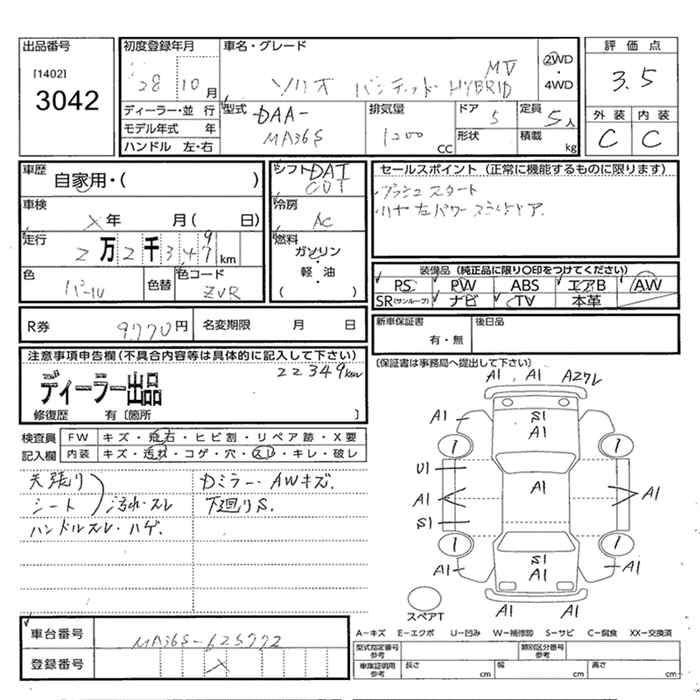 出品番号
[1402]
3042
初度登録年月
28 10月
車名・グレード
ソリオ バンディット HYBRID MV
2WD
・
4WD
評価点
3.5
外装 内装
C C
ディーラー・並行
モデル年式 年
ハンドル 左・右
型式
DAA-
MA36S
排気量
1200
CC
ドア
5
形状
定員
5人
積載
kg
車歴
自家用・( )
車検
×年 月( 日)
走行
2万2千347km
色
パール
色替
色コード
ZVR
シフト
DAT
CVT
冷房
AC
燃料
ガソリン・
軽・油
( )
セールスポイント (正常に機能するものに限ります)
プッシュスタート
左パワースライドドア.
装備品 (純正品に限り〇印をつけてください)
PS PW ABS エアB AW
SR(サンルーフ) ナビ TV 本革
R券
9,770円
名変期限 月 日
新車保証書
有・無
後日品
(保証書は事務局へ提出して下さい)
注意事項申告欄 (不具合内容等は具体的に記入して下さい)
22349km
ディーラー出品
修復歴 有 〔箇所 〕
検査員
記入欄
FW キズ・飛石・ヒビ割・リペア跡・X要
内装 キズ・汚れ・コゲ・穴・スレ・キレ・破レ
天張り
シート
汚れ・スレ
ハンドルスレ・ハゲ.
Dミラー・AWキズ.
下廻りS.
A1 A1 A27L
A1 S1 A1 A1
1 1
U1
A1 A1 A1
S1
1 1
A1 S1 A1 A1
A1 A1
スペアT
A-キズ E-エクボ U-凹み W-補修跡 S-サビ C-腐食 XX-交換済
車台番号
MA36S-625772
登録番号
型式指定番号
参考
類別区分番号
参考
車庫証明用
参考
長さ cm
幅 cm
高さ cm